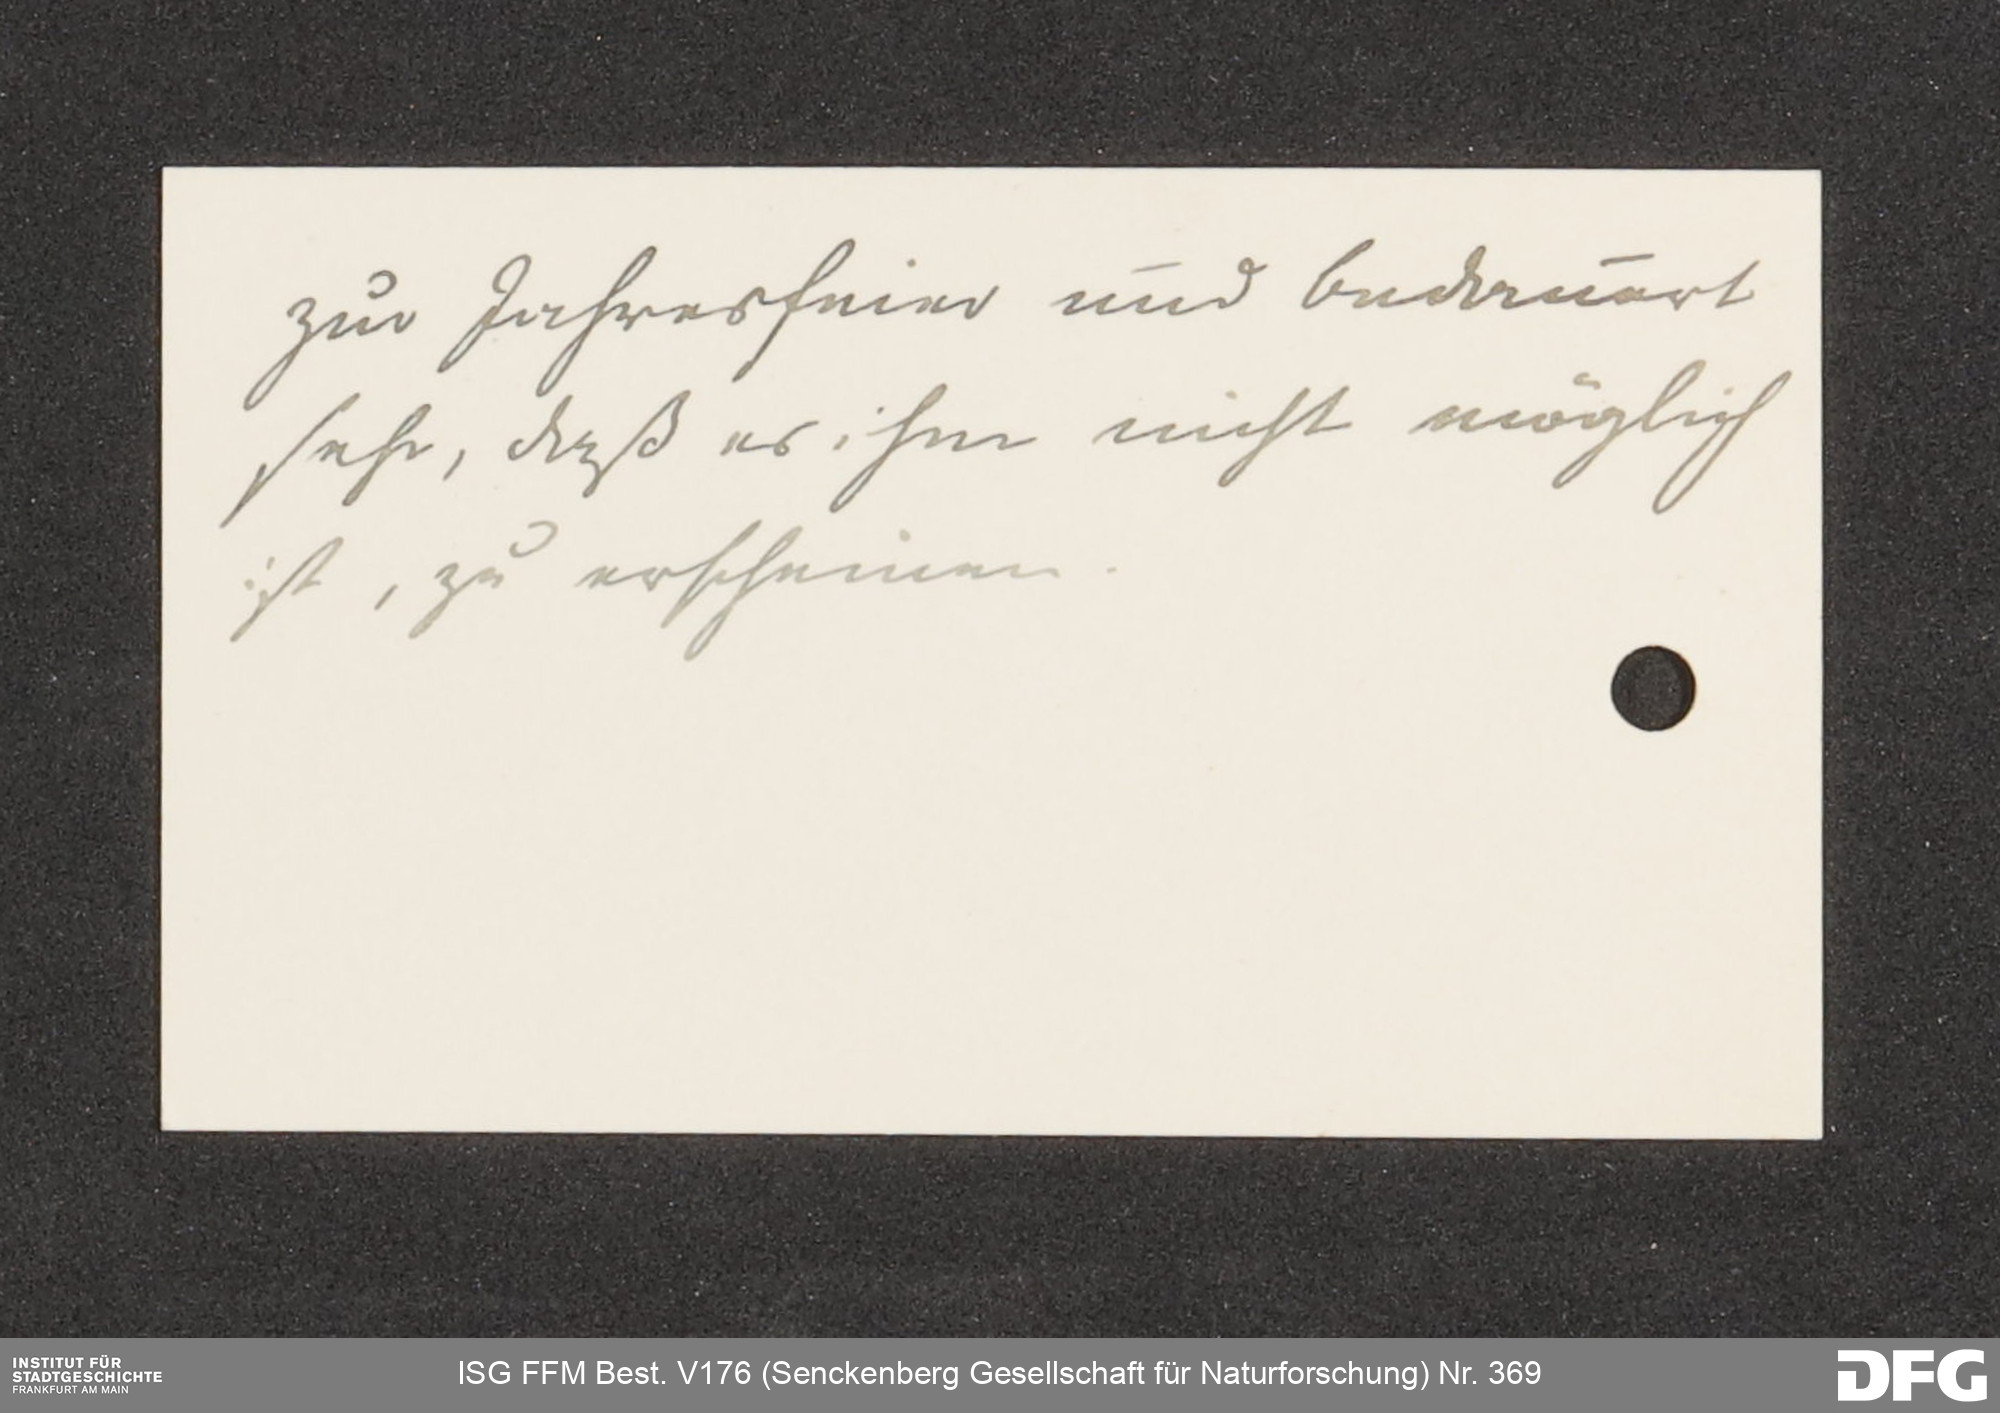 zur Jahresfeier und bedauert
sehr, daß es ihm nicht möglich
ist, zu erscheinen.
INSTITUT FÜR
STADTGESCHICHTE
FRANKFURT AM MAIN
ISG FFM Best. V176 (Senckenberg Gesellschaft für Naturforschung) Nr. 369
DFG